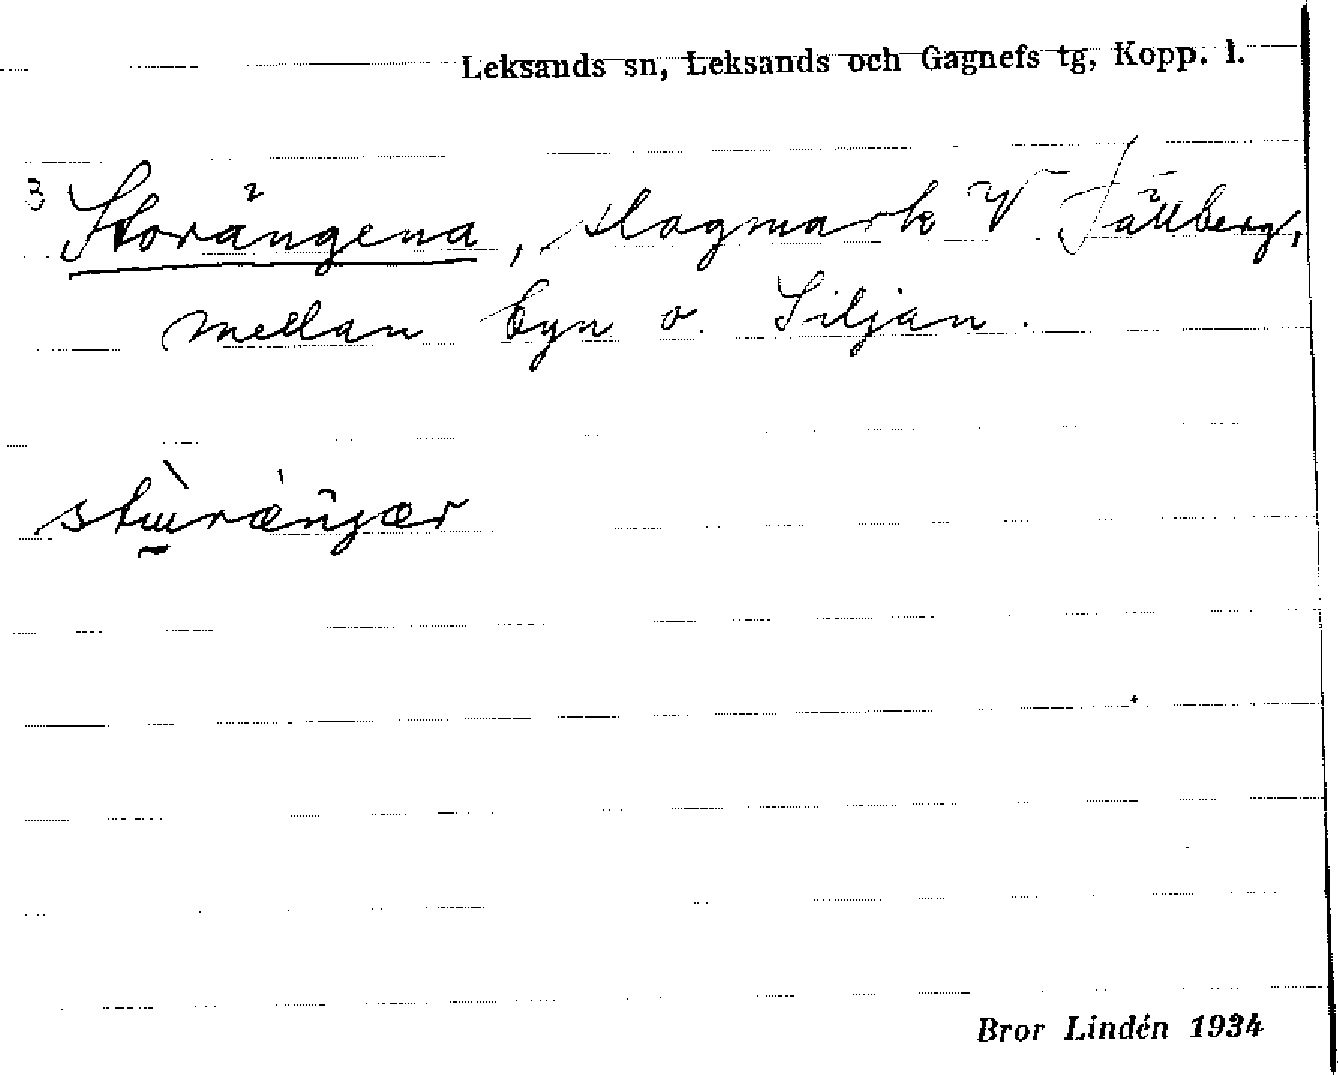 Leksands sn, Leksands och Gagnefs tg, Kopp. l.
3 Storängena, slogmark V Tällberg,
mellan byn o. Siljan.
Bror Lindén 1934